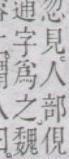 忽見。人部俔
通字爲之。魏